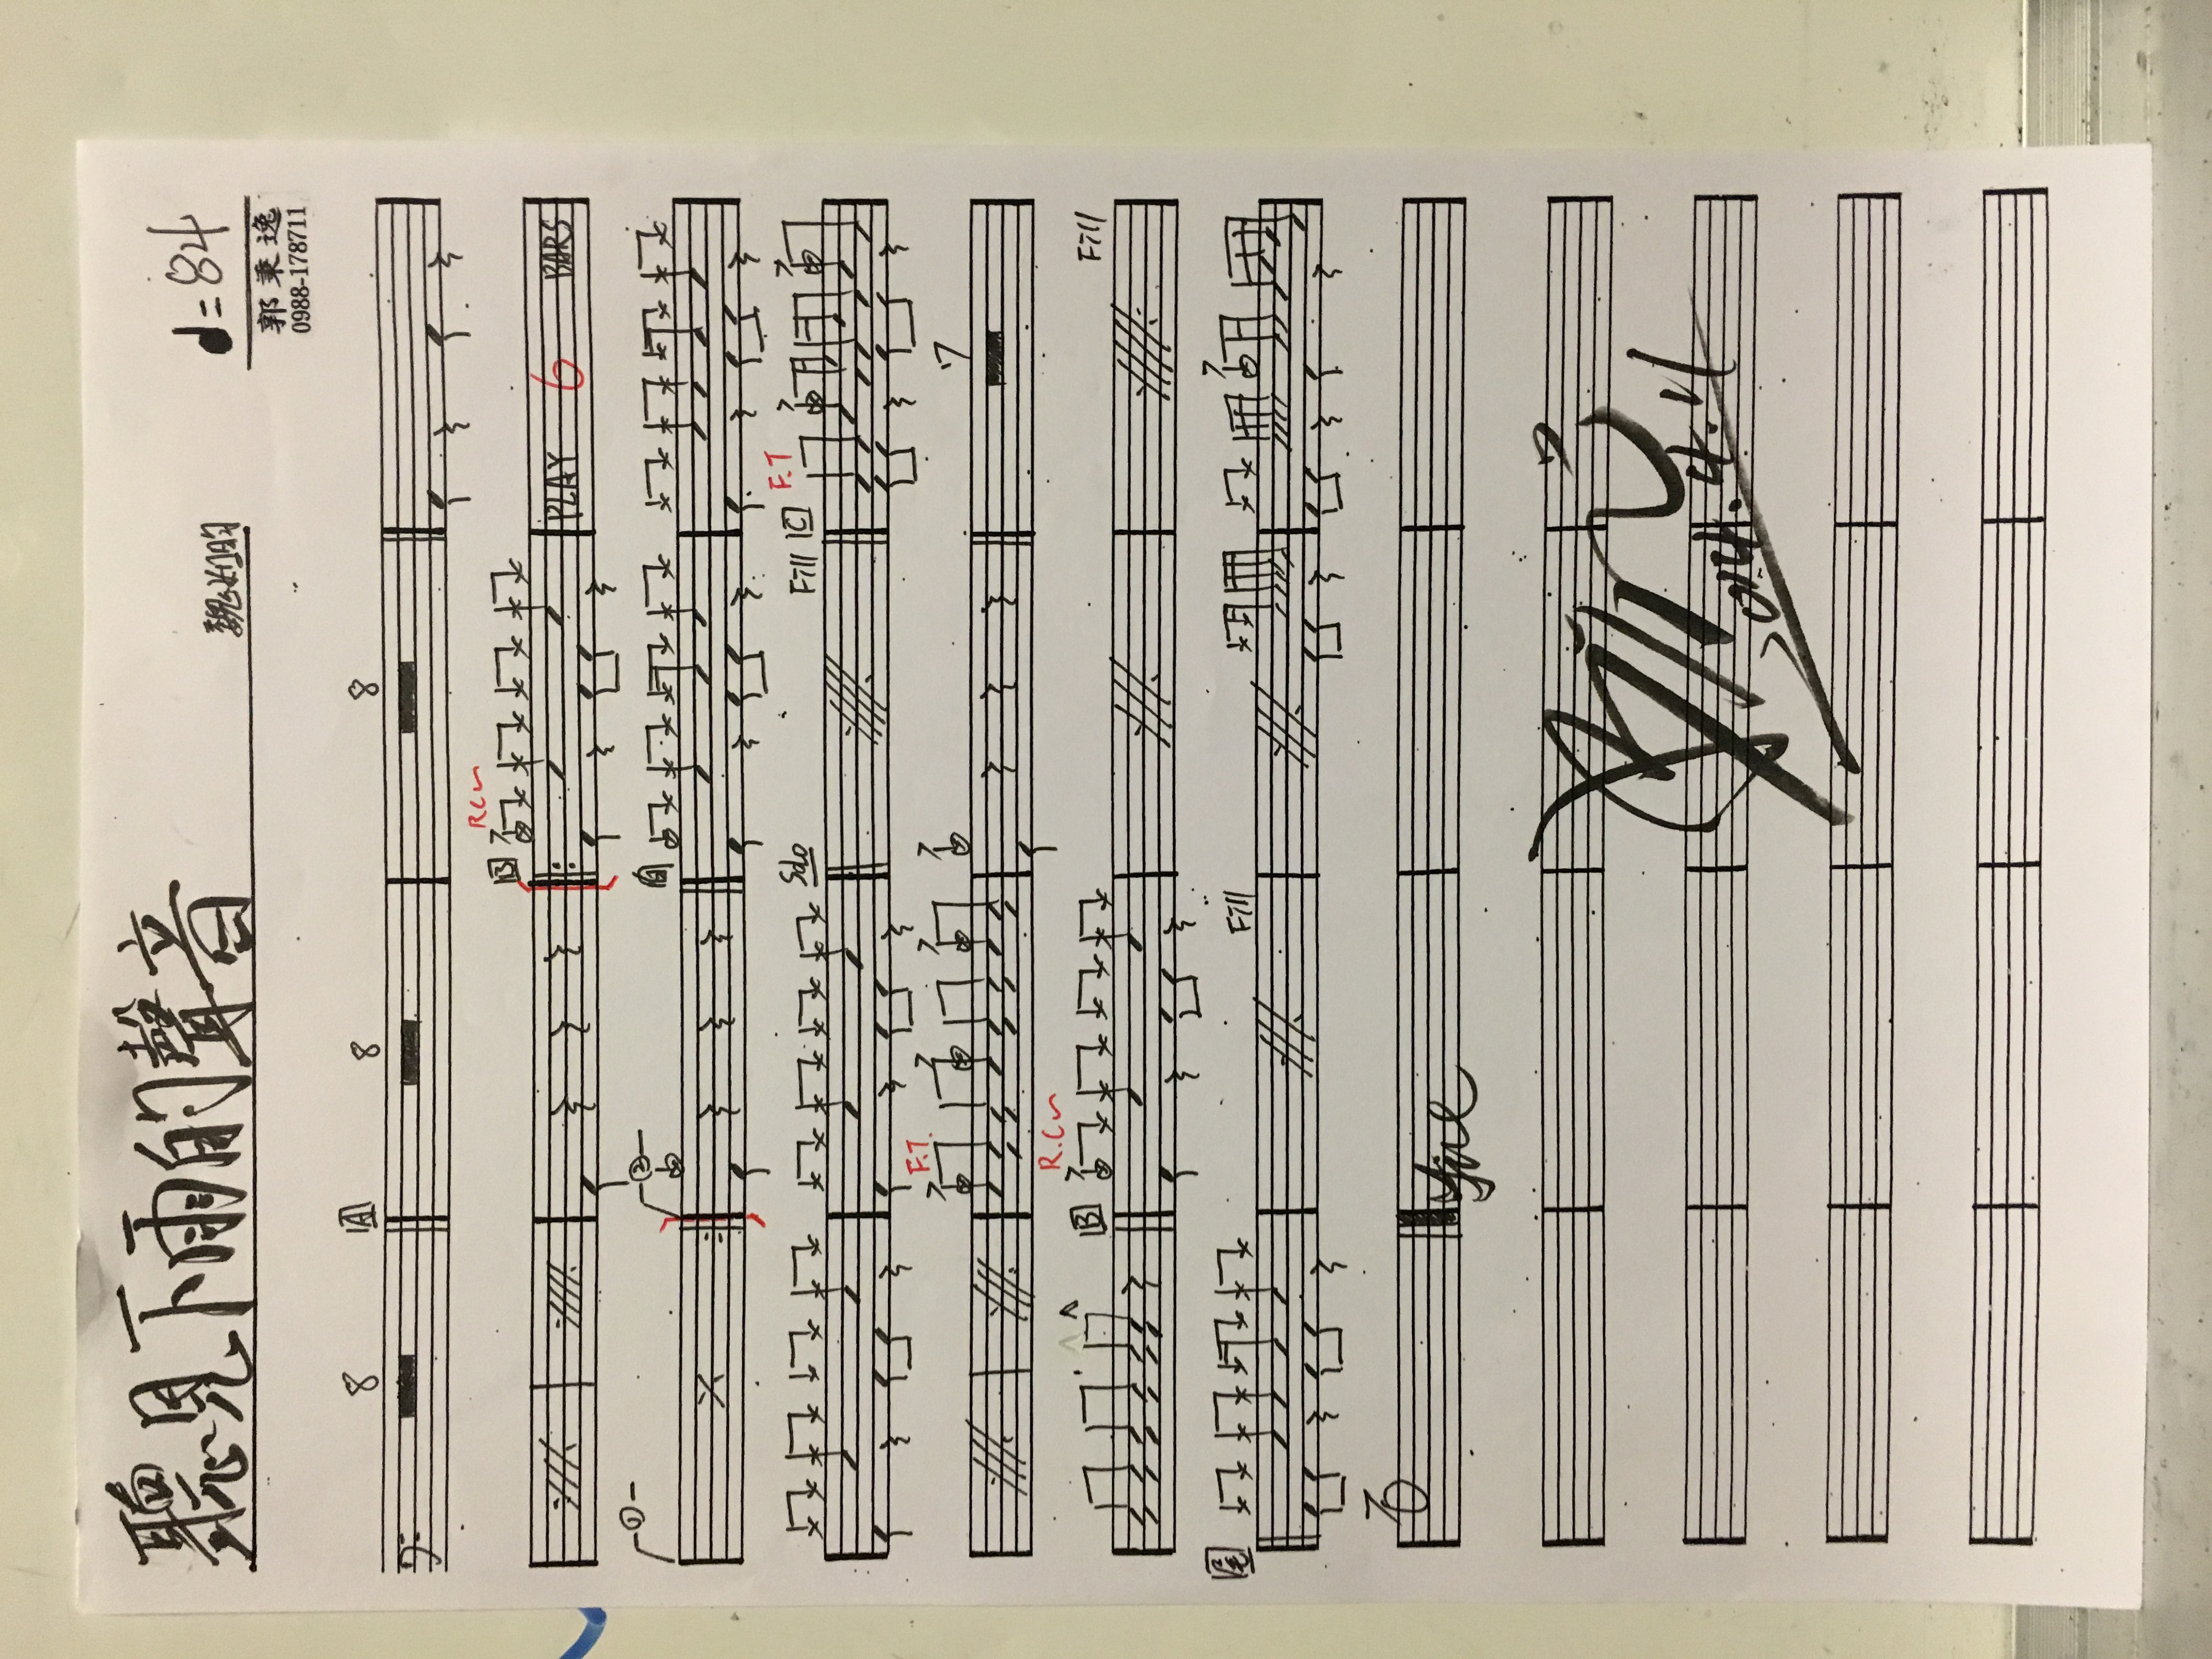 聽見下雨的聲音
魏如昀
♩=84
郭秉逸
0988-178711
8 A 8 8
R.C
B PLAY 6 BARS
① ②
Solo Fill C F.T
F.T. 7
B R.C Fill
尾 Fill
Fine
2014.4.11